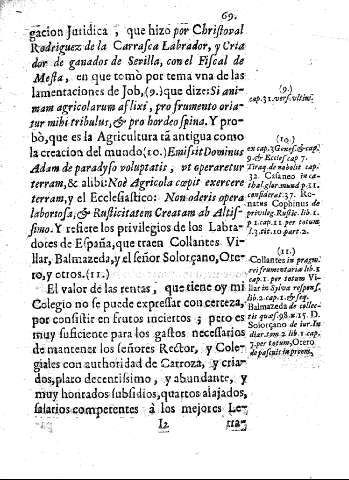 69.
gacion Juridica , que hizo por Christoval
Rodriguez de la Carrasca Labrador, y Cria
dor de ganados de Sevilla, con el Fiscal de
Mesta, en que tomò por tema vna de las
lamentaciones de Job,(9.)que dize:Si ani-
mam agricolarum aflixi, pro frumento oria-
tur mihi tribulus, & pro hordeo spina. Y pro-
bò, que es la Agricultura tã antigua como
la creacion del mundo(10.)Emissit Dominus
Adam de paradyso voluptatis, vt operaretur
terram, & alibi: Noè Agricola cœpit exercere
terram, y el Ecclesiastico: Non oderis opera
labortosa, & Rusticitatem Creatam ab Altis-
simo. Y refiere los privilegios de los Labra-
dores de España, que traen Collantes Vi-
llar, Balmazeda, y el señor Solorçano, Ote-
ro, y otros.(11.)
El valor de las rentas, que tiene oy mi
Colegio no se puede expressar con certeza,
por consistir en frutos inciertos ; pero es
muy suficiente para los gastos necessarios
de mantener los señores Rector, y Cole-
giales con authoridad de Carroza, y cria-
dos, plato decentissimo, y abundante, y
muy honrados subsidios, quartos alajados,
salarios competentes à los mejores Le-
I2 tra-
(9.)
cap.31.vers.vltim.
(10.)
ex cap.3 Genes.& cap.
9.& Eccles cap 7.
Tiraq. de nobilit cap.
32. Casaneo in ca-
thal.glor.mund p.11.
considerat 37. Re-
natus Cophinus de
privileg.Rustic. lib. 1.
p 1.cap.11.per totum
l.3.tit.10 part.2.
(11.)
Collantes in pragm
rei frumentaria lib.1
cap.1. per totum Vi-
llar in Sylva respons.
lib.2.cap.1.& seq.
Balmazeda de collec-
tis quæs.98.n.15. D.
Solorçano de iur.In-
diar.tom 2 lib 1.cap.
7.per totum, Otero
de pascuit in proem,